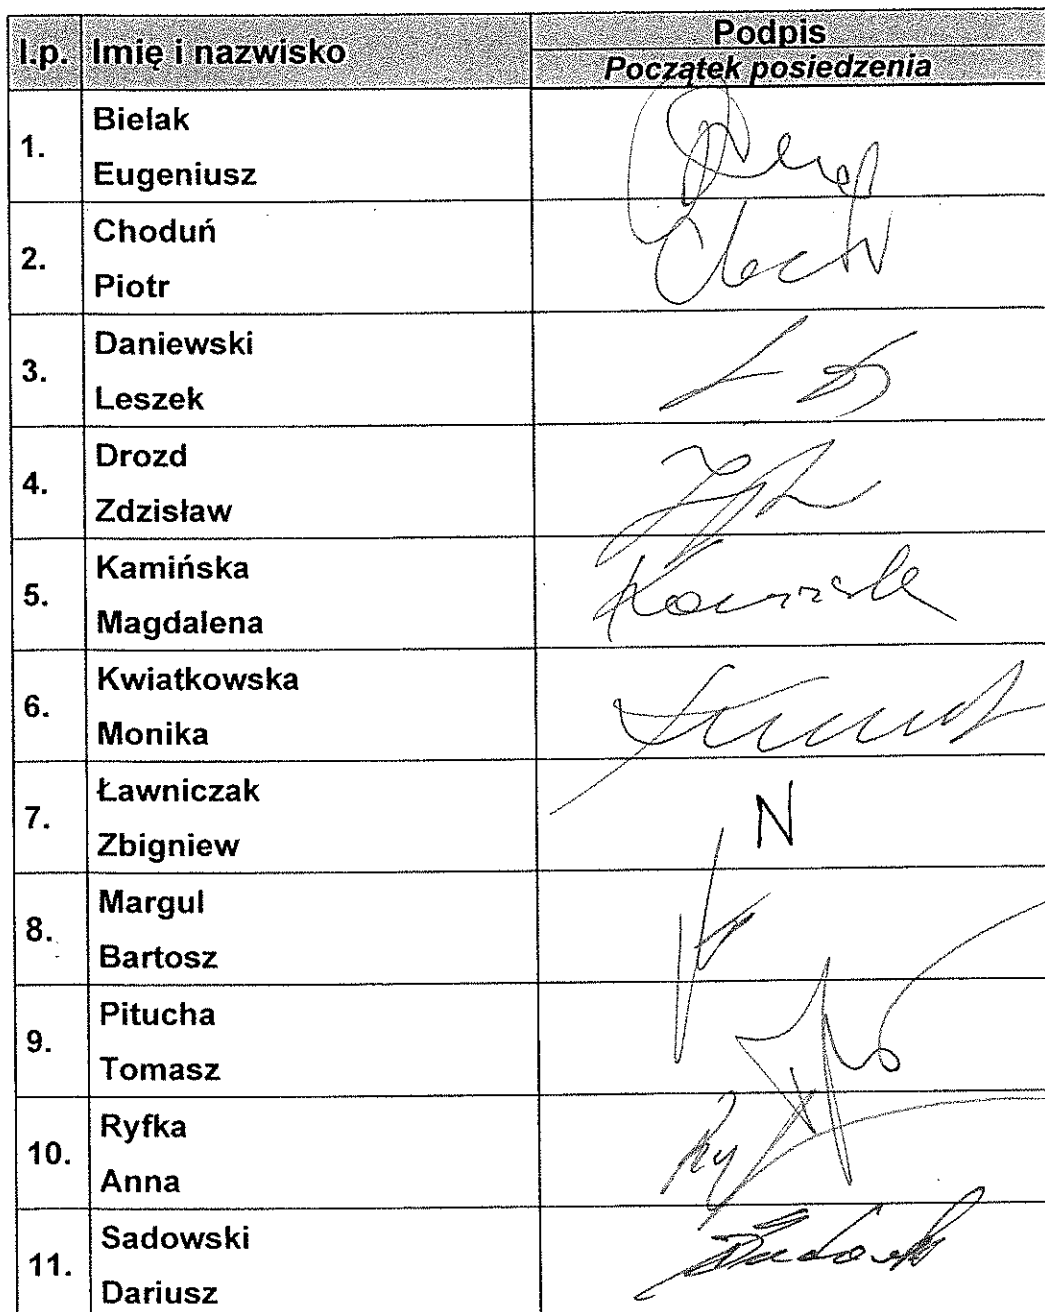 l.p. Imię i nazwisko Podpis
Początek posiedzenia
1. Bielak
Eugeniusz
2. Choduń
Piotr
3. Daniewski
Leszek
4. Drozd
Zdzisław
5. Kamińska
Magdalena
6. Kwiatkowska
Monika
7. Ławniczak
Zbigniew
N
8. Margul
Bartosz
9. Pitucha
Tomasz
10. Ryfka
Anna
11. Sadowski
Dariusz